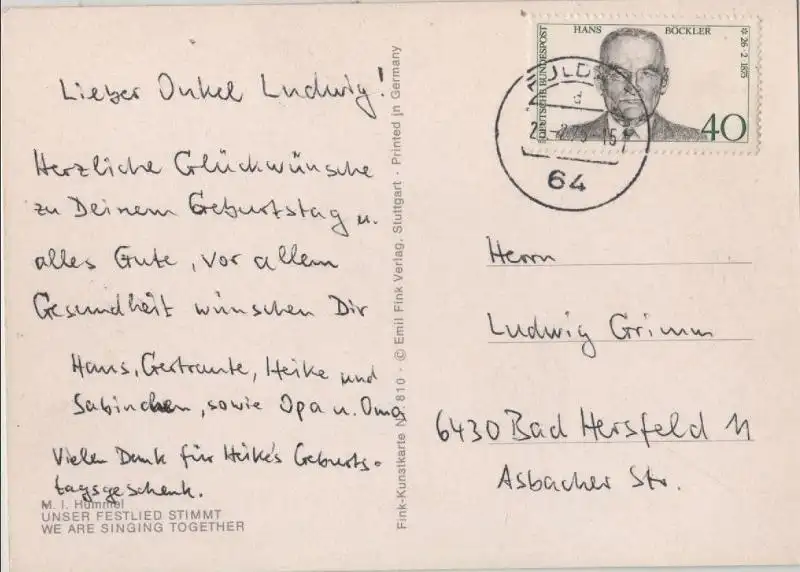 Lieber Onkel Ludwig!
Herzliche Glückwünsche
zu Deinem Geburtstag u.
alles Gute, vor allem
Gesundheit wünschen Dir
Hans, Gertraute, Heike und
Sabinchen, sowie Opa u. Oma
Vielen Dank für Heike's Geburts-
tagsgeschenk.
M. I. Hummel
UNSER FESTLIED STIMMT
WE ARE SINGING TOGETHER
Fink-Kunstkarte Nr. 810 · © Emil Fink Verlag, Stuttgart · Printed in Germany
DEUTSCHE BUNDESPOST
HANS BÖCKLER
* 26·2·1875
40
64
Herrn
Ludwig Grimm
6430 Bad Hersfeld 11
Asbacher Str.